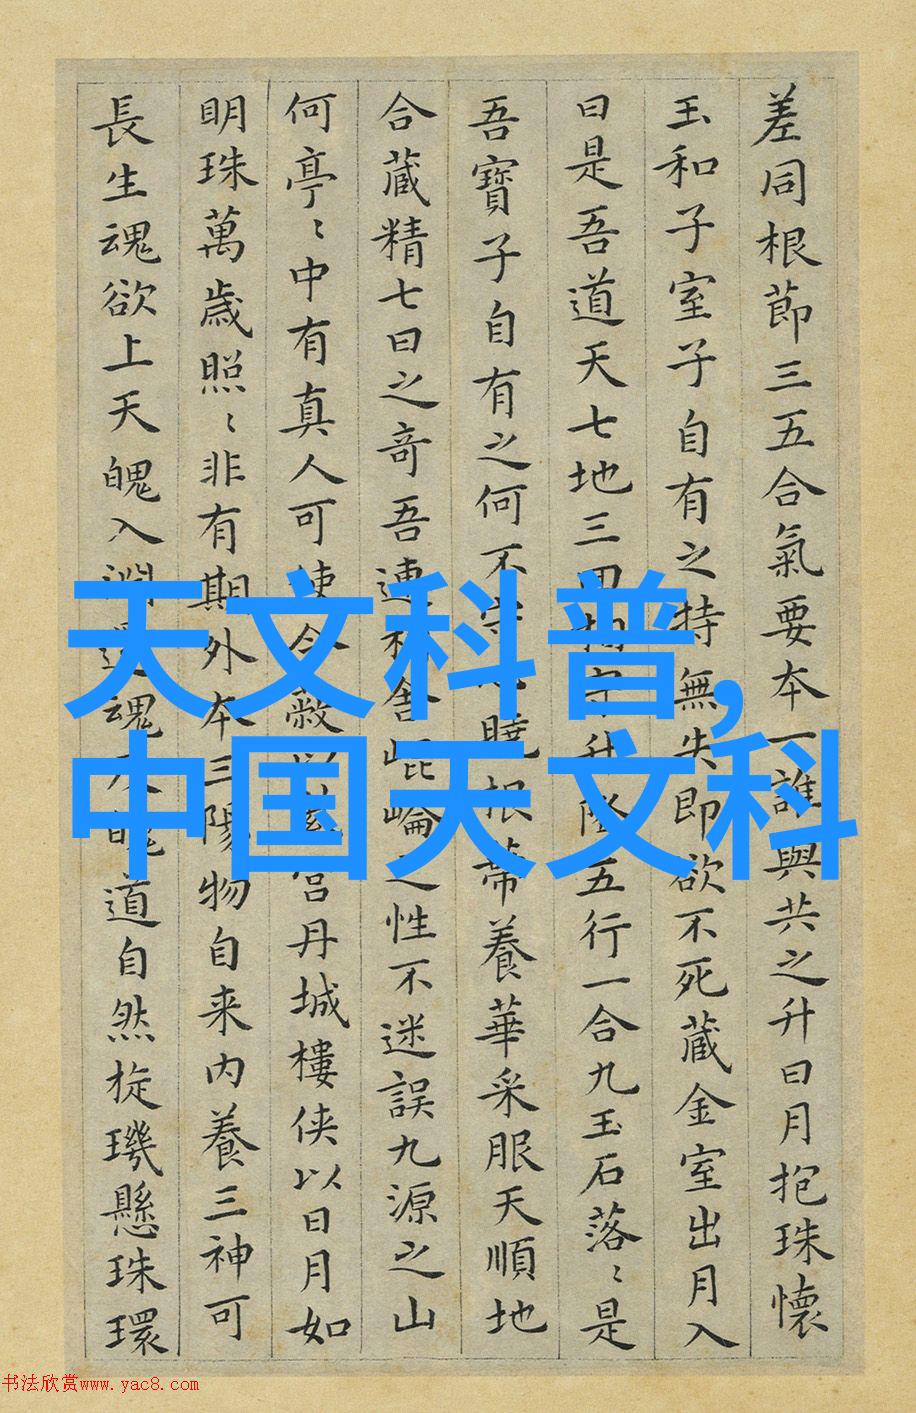 差同根節三五合氣要本一誰與共之升日月抱珠懷
玉和子室子自有之持無失即欲不死藏金室出月入
日是吾道天七地三 升降五行一合九玉石落〻是
吾寶子自有之何不 根蒂養華采服天順地
合藏精七日之奇吾連 舍崐崘之性不迷誤九源之山
何亭〻中有真人可使令 宮丹城樓俠以日月如
明珠萬歲照〻非有期外本三陽物自来内養三神可
長生魂欲上天魄入淵還魂 魄道自然旋璣懸珠環
天文科普,
中国天文科
书法欣赏www.yac8.com